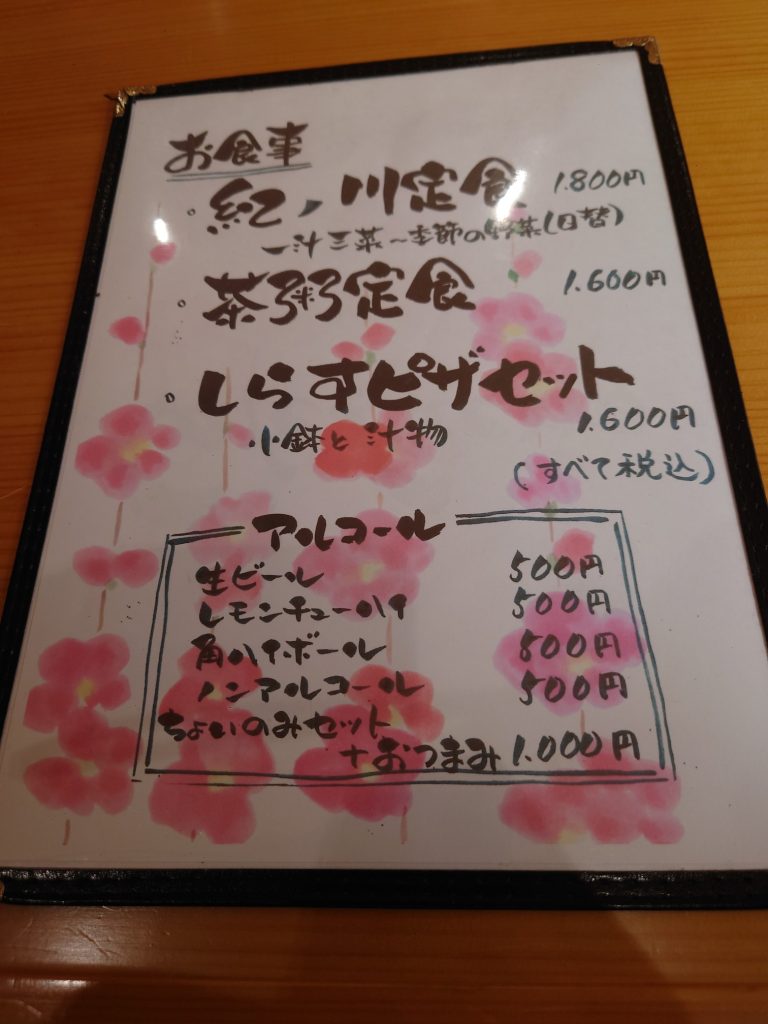 お食事
・紀ノ川定食 1.800円
一汁三菜～季節の野菜(日替)
・茶粥定食 1.600円
・しらすピザセット
1.600円
小鉢と汁物
(すべて税込)
アルコール
生ビール 500円
レモンチューハイ 500円
角ハイボール 500円
ノンアルコール 500円
ちょいのみセット
+おつまみ 1.000円